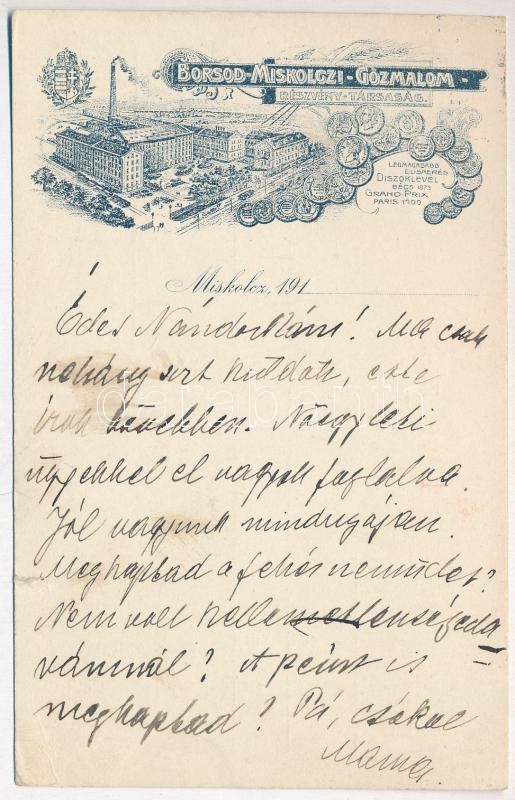 BORSOD-MISKOLCZI-GŐZMALOM
RÉSZVÉNY-TÁRSASÁG.
LEGMAGASABB
ELISMERÉS
DISZOKLEVÉL
BÉCS 1873
GRAND-PRIX
PARIS 1900
Miskolcz, 191
Édes Nándorkám! Ma csak
néhány sort küldök, este
írok bővebben. Nőegyleti
ügyekkel el vagyok foglalva.
Jól vagyunk mindnyájan.
Megkaptad a fehérneműdet?
Nem volt kellemetlenséged a
vámnál? A pénzt is
megkaptad? Pá, csókol
Mama.